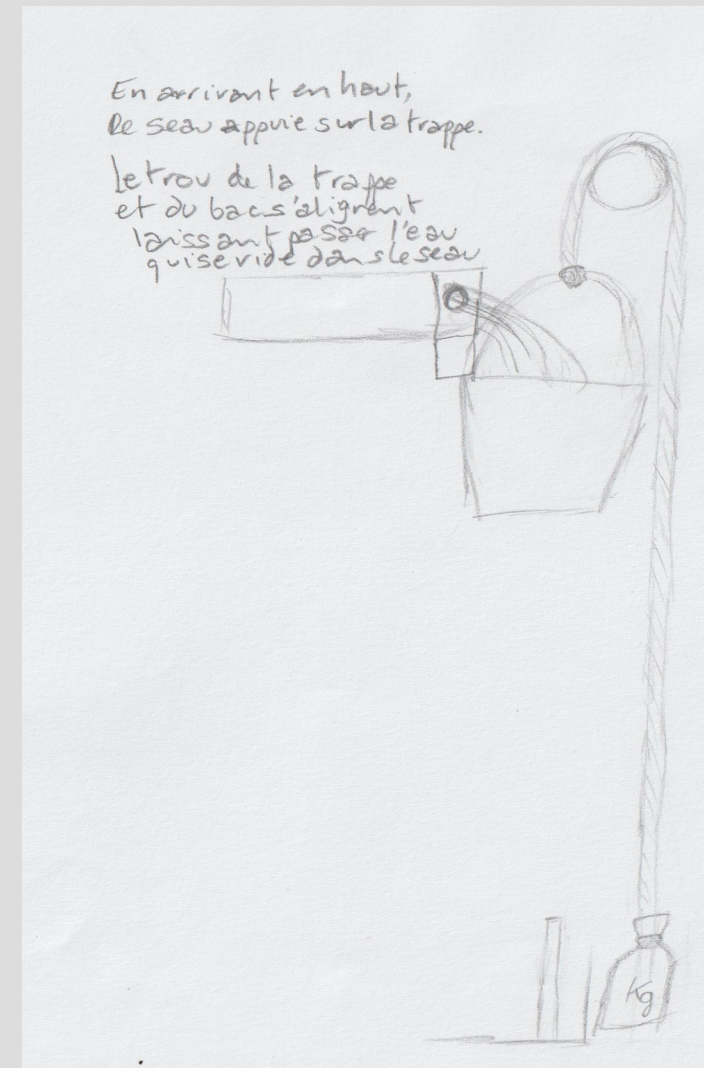 En arrivant en haut,
le seau appuie sur la trappe.
Le trou de la trappe
et du bac s'alignent
laissant passer l'eau
qui se vide dans le seau
Kg